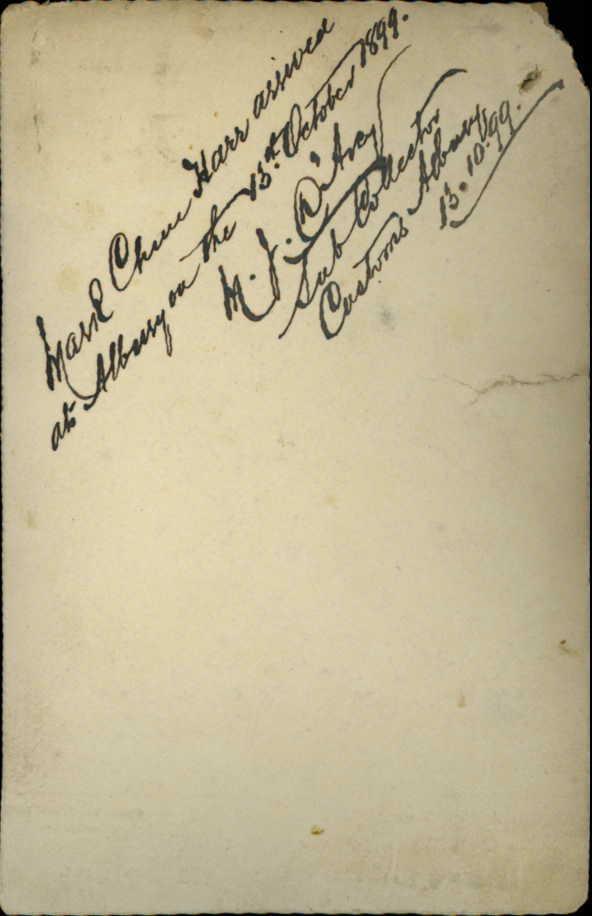 Mark Chue Harr arrived
at Albury on the 13th October 1899.
M. J. D'Arcy
Sub Collector
Customs Albury
13.10.99.